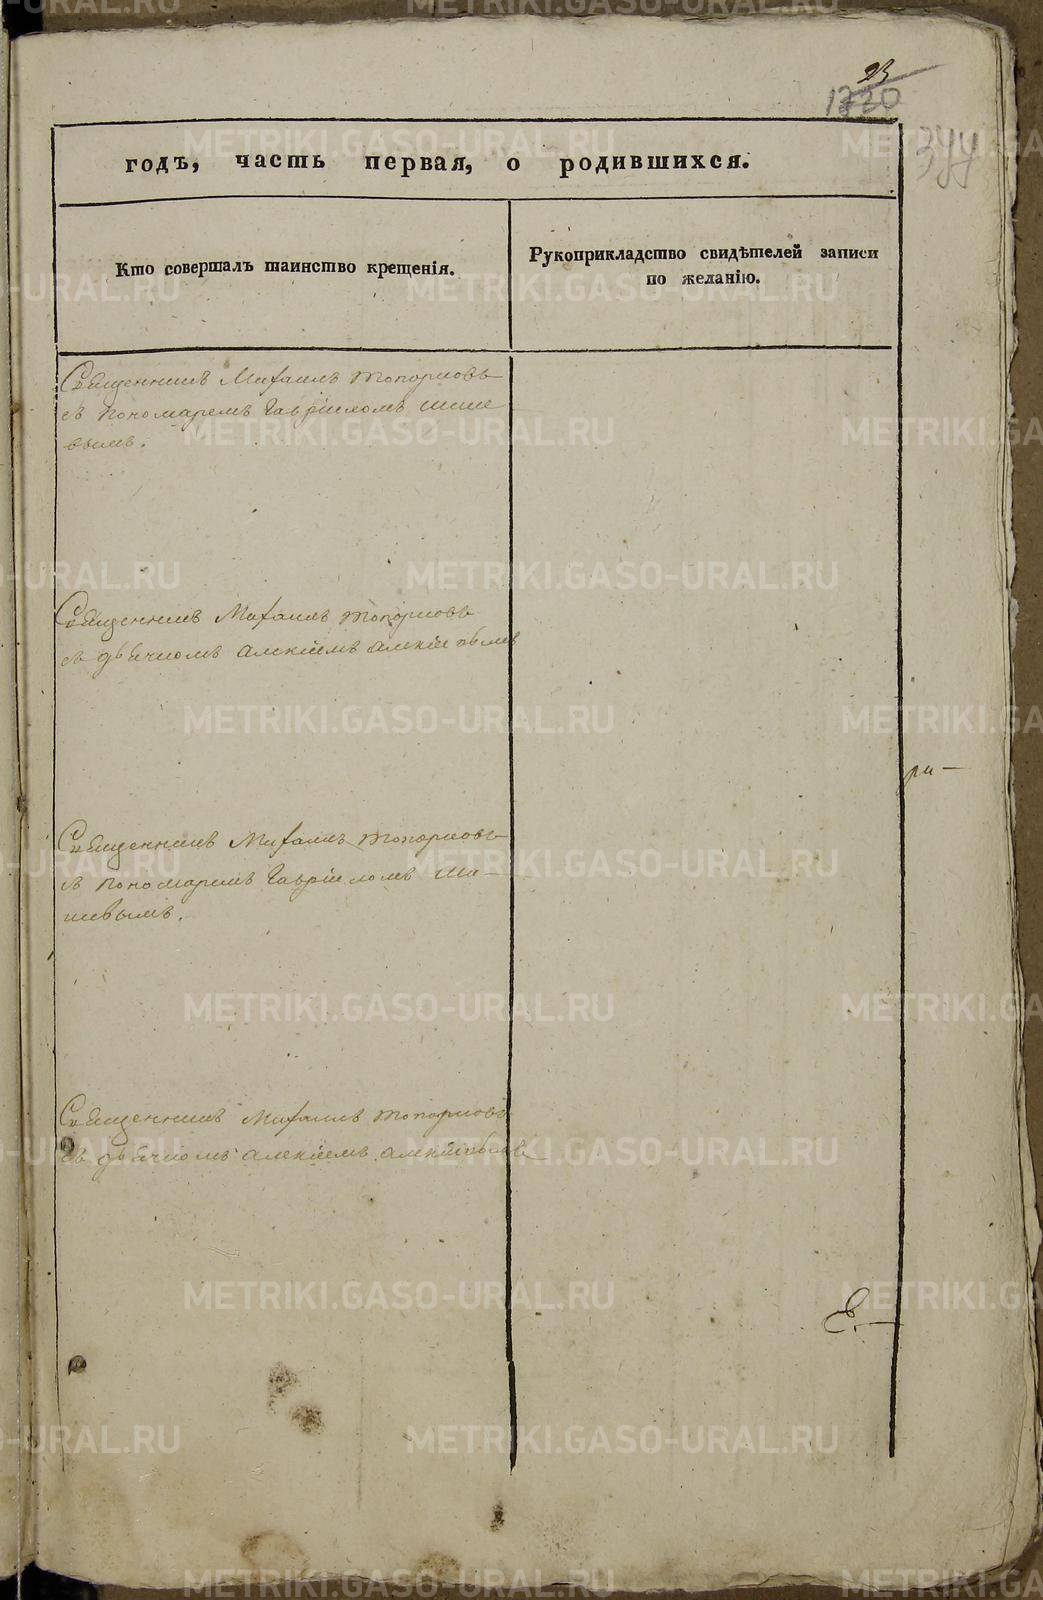 23
1220
344
годъ, часть первая, о родившихся.
Кто совершалъ таинство крещенія.
Рукоприкладство свидѣтелей записи
по желанію.
Священникъ Михаилъ Топорковъ
съ Пономаремъ Гавріиломъ Шише
вымъ.
Священникъ Михаилъ Топорковъ
съ дьячкомъ Алексіемъ
Священникъ Михаилъ Топорковъ
съ Пономаремъ Гавріиломъ Ши-
шевымъ.
ри-
Священникъ Михаилъ Топорковъ
съ дьячкомъ Алексіемъ
METRIKI.GASO-URAL.RU